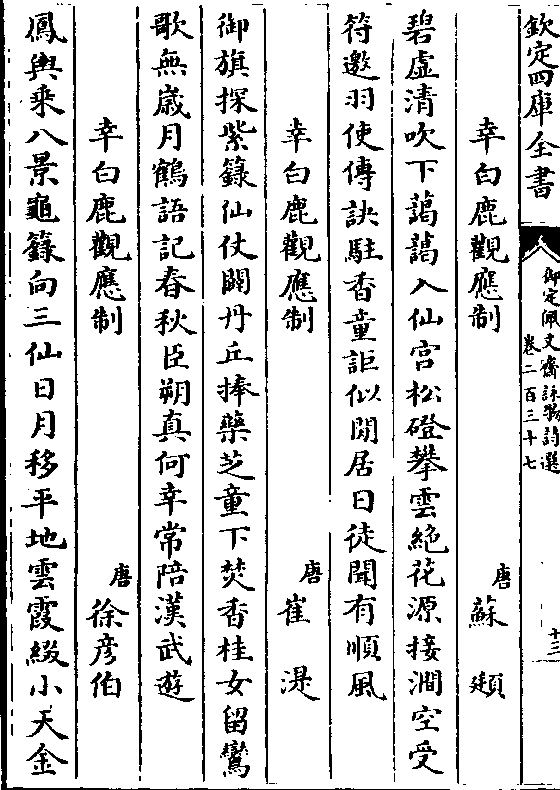 欽定四庫全書
御定佩文齋詠物詩選
卷二百三十七
十三
幸白鹿觀應制 唐 蘇頲
碧虛清吹下藹藹入仙宮松磴攀雲絶花源接澗空受
符邀羽使傳訣駐香童詎似閒居日徒聞有順風
幸白鹿觀應制 唐 崔湜
御旗探紫籙仙仗闢丹丘捧藥芝童下焚香桂女留鸞
歌無歲月鶴語記春秋臣朔真何幸常陪漢武遊
幸白鹿觀應制 唐 徐彦伯
鳳輿乘八景龜籙向三仙日月移平地雲霞綴小天金